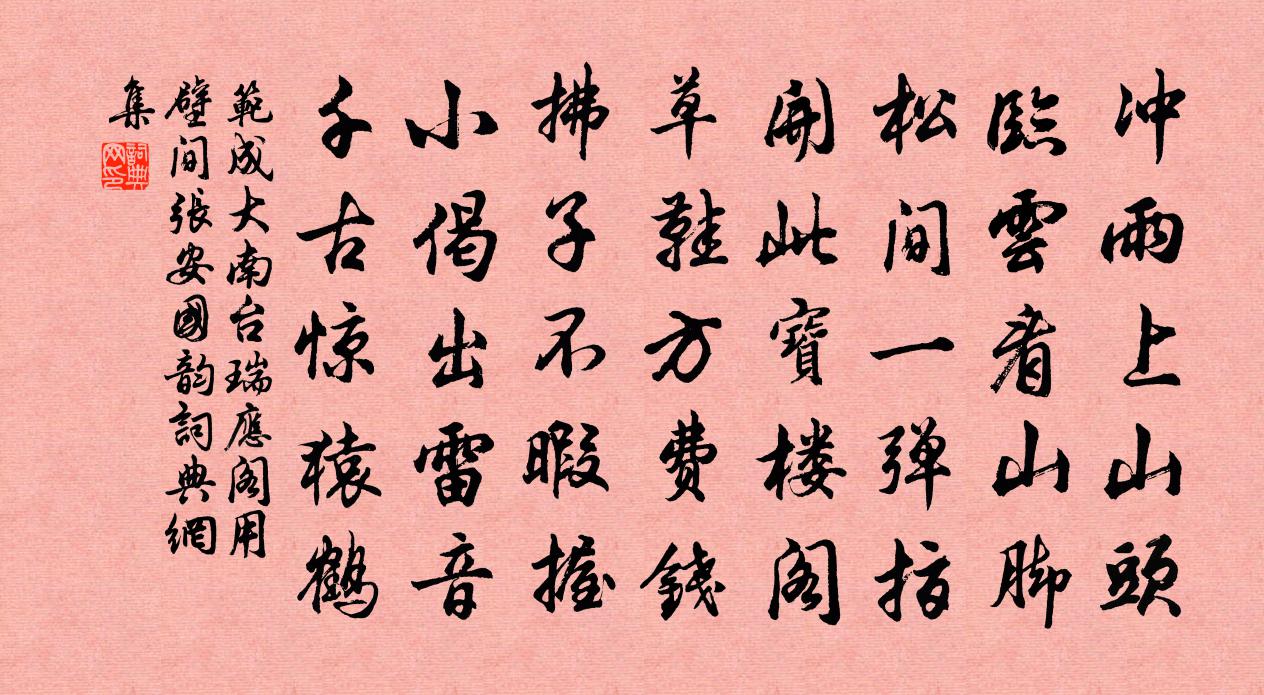 冲雨上山頭
臨雲看山脚
松间一弹指
開此寶楼阁
草鞋方费錢
拂子不暇握
小偈出雷音
千古惊猿鹤
範成大南台瑞應阁用
壁间張安國韵詞典網
集
詞典
网印